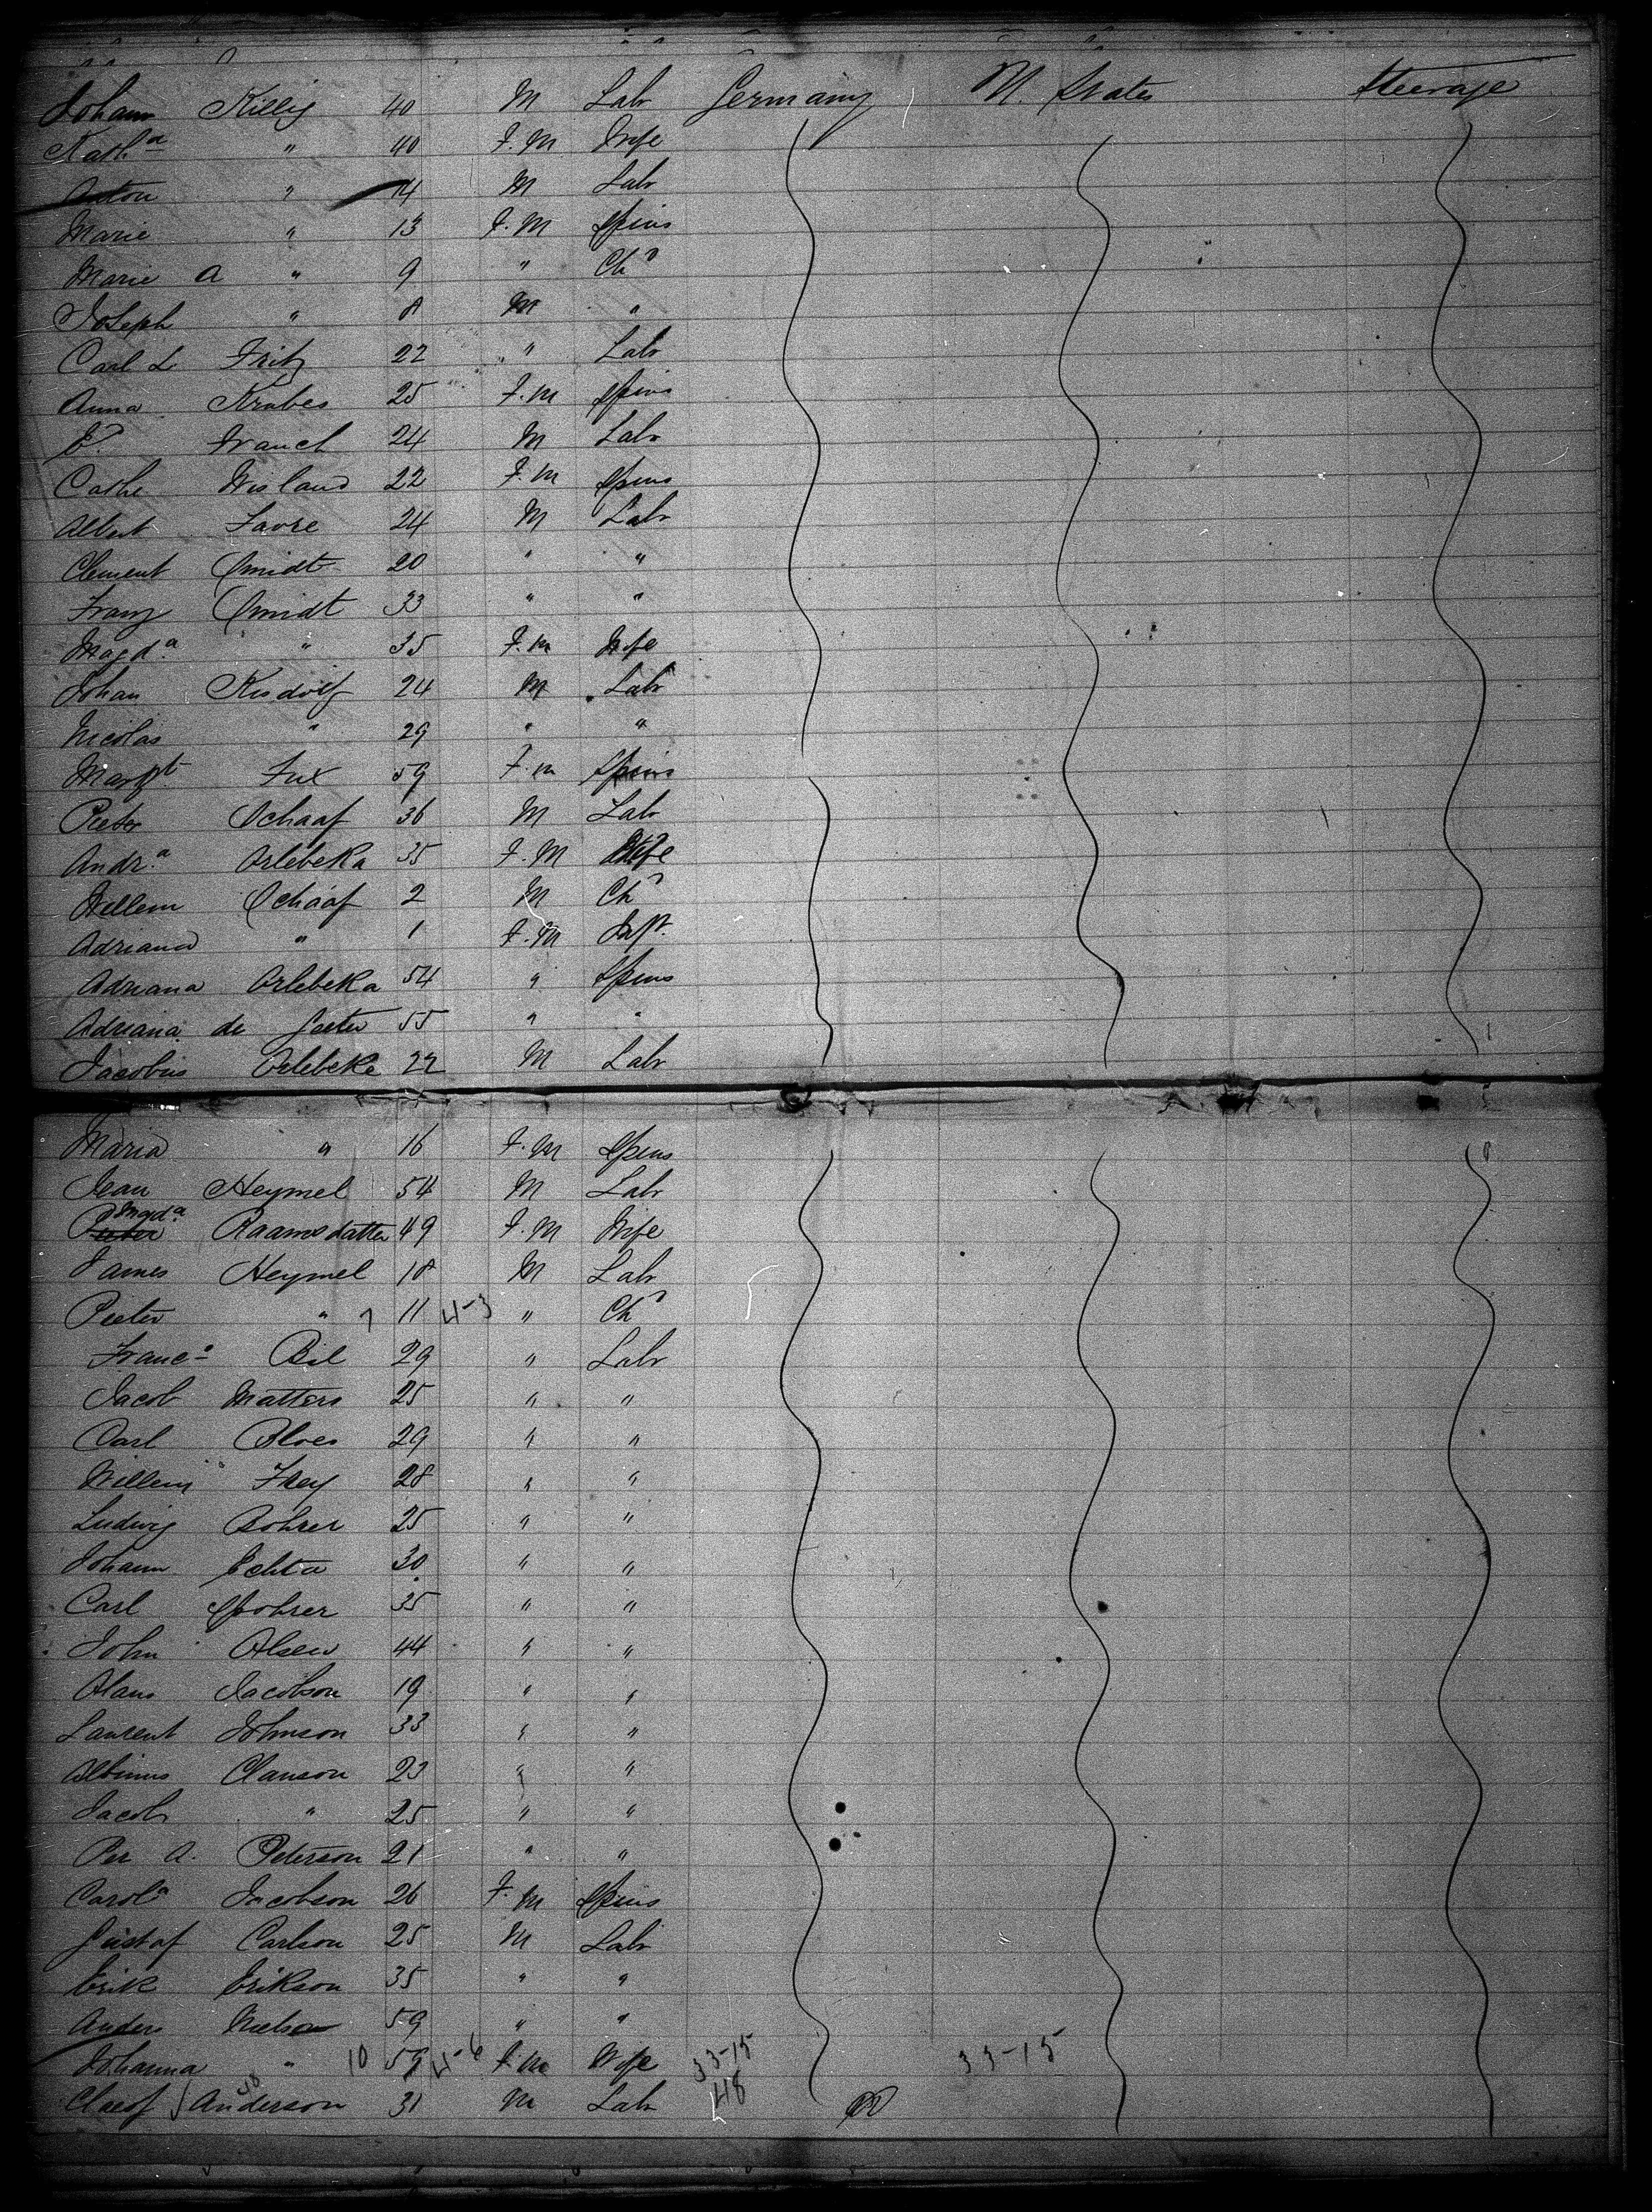 Johann Killig 40 M Labr Germany U. States Steerage
Kath.a " 40 F.M Wife
Anton " 14 M Labr
Marie " 13 F.M Spins
Marie A " 9 " Chd
Joseph " 8 M "
Carl L Fritz 22 " Labr
Anna Krabes 25 F.M Spins
24 M Labr
Cathe Wisland 22 F.M Spins
Albert Favre 24 M Labr
Clement Smidt 20 " "
Franz Smidt 33 " "
Magd.a " 35 F.M Wife
Johan 24 M Labr
Nicolas " 29 " "
Margt. Fux 59 F.M Spins
Pieter Schaaf 36 M Labr
Andr.a Orlebeka 35 F.M Wife
Willem Schaaf 2 M Chd
Adriana " 1 F.M Inft.
Adriana Orlebeka 54 " Spins
Adriana de 55 " "
Jacobus Orlebeke 22 M Labr
Maria " 16 F.M Spins
Jean Heymel 54 M Labr
Magd.a Raamsdatter 49 F.M Wife
James Heymel 18 M Labr
Pieter " 7 11 4-3 " Chd
Franc.o Bil 29 " Labr
Jacob Matters 25 " "
Carl Bloes 29 " "
Willem Frey 28 " "
Ludwig Bohrer 25 " "
Johann Echta 30 " "
Carl Spohrer 35 " "
John Olsen 44 " "
Olaus Jacobson 19 " "
Laurent Johnson 33 " "
Albinus Clauson 23 " "
Jacob " 25 " "
Per A. Peterson 21 " "
Carol.a Jacobson 26 F.M Spins
Gustaf Carlson 25 M Labr
Erik Erikson 35 " "
Anders Nielson 59 " "
Johanna " 10 59 4-6 F.M Wife 33-15 33-15
Claes J Anderson 48 31 M Labr 48